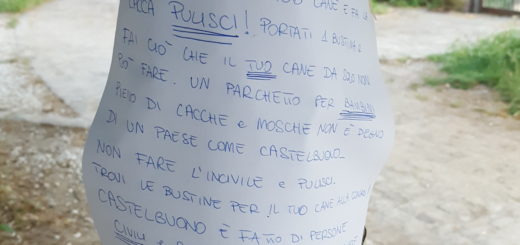 CANE E FA LA
CACCA PULISCI! PORTATI 1 BUSTINA E
FAI CIÒ CHE IL TUO CANE DA SOLO NON
PUÒ FARE. UN PARCHETTO PER BAMBINI
PIENO DI CACCHE e MOSCHE NON È DEGNO
DI UN PAESE COME CASTELBUONO
NON FARE L'INCIVILE e PULISCI.
TROVI LE BUSTINE PER IL TUO CANE ALLA
CASTELBUONO È FATTO DI PERSONE
CIVILI e